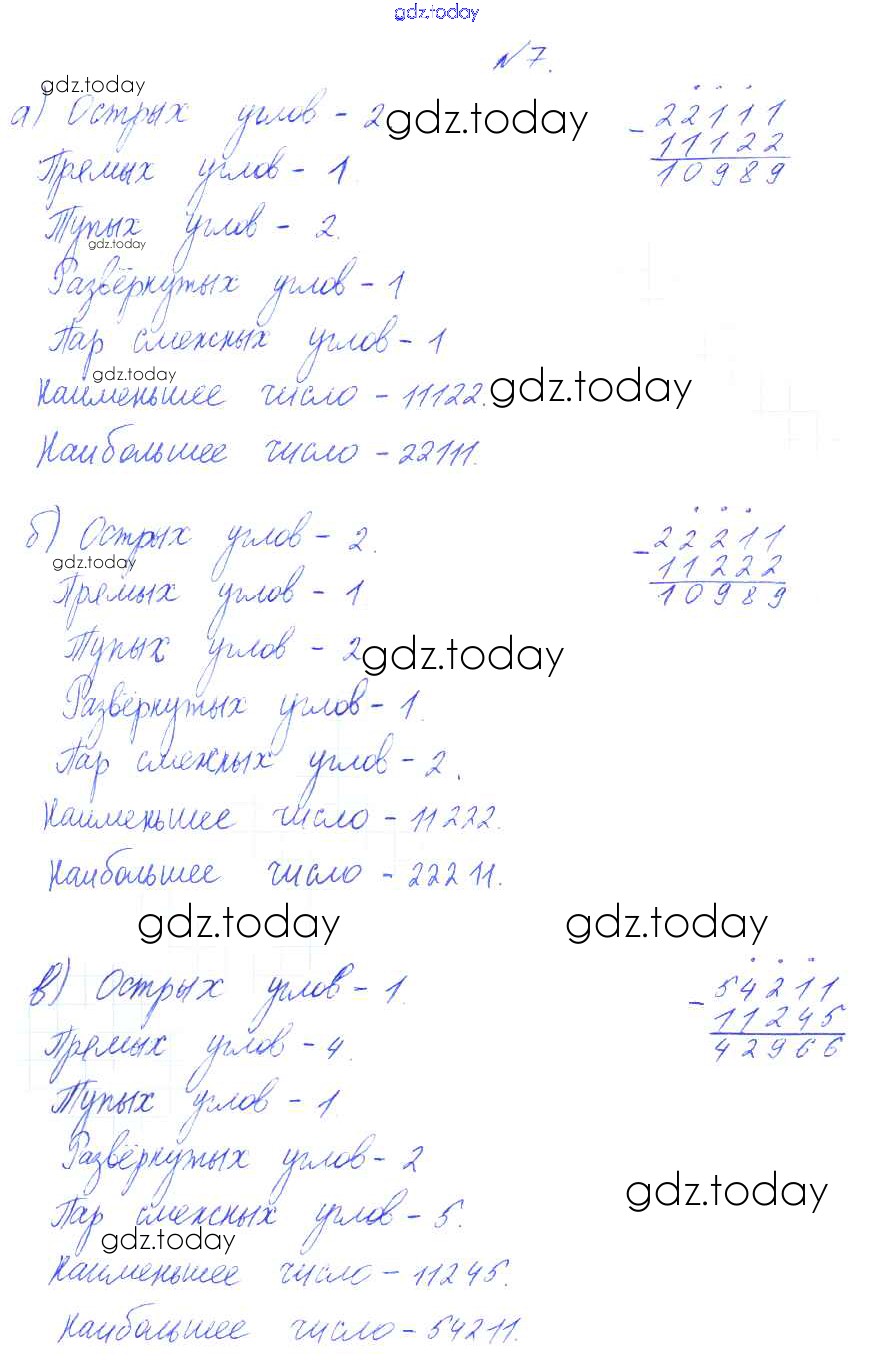 gdz.today
№7.
gdz.today
а) Острых углов - 2 gdz.today
Прямых углов - 1
Тупых углов - 2.
gdz.today
Развёрнутых углов - 1
Пар смежных углов - 1
gdz.today
Наименьшее число - 11122. gdz.today
Наибольшее число - 22111.
- 22111
11122
10989
б) Острых углов - 2.
gdz.today
Прямых углов - 1
Тупых углов - 2 gdz.today
Развёрнутых углов - 1.
Пар смежных углов - 2.
Наименьшее число - 11222.
Наибольшее число - 22211.
- 22211
11222
10989
gdz.today gdz.today
в) Острых углов - 1.
Прямых углов - 4.
Тупых углов - 1.
Развёрнутых углов - 2
gdz.today
Пар смежных углов - 5.
gdz.today
Наименьшее число - 11245.
Наибольшее число - 54211.
- 54211
11245
42966